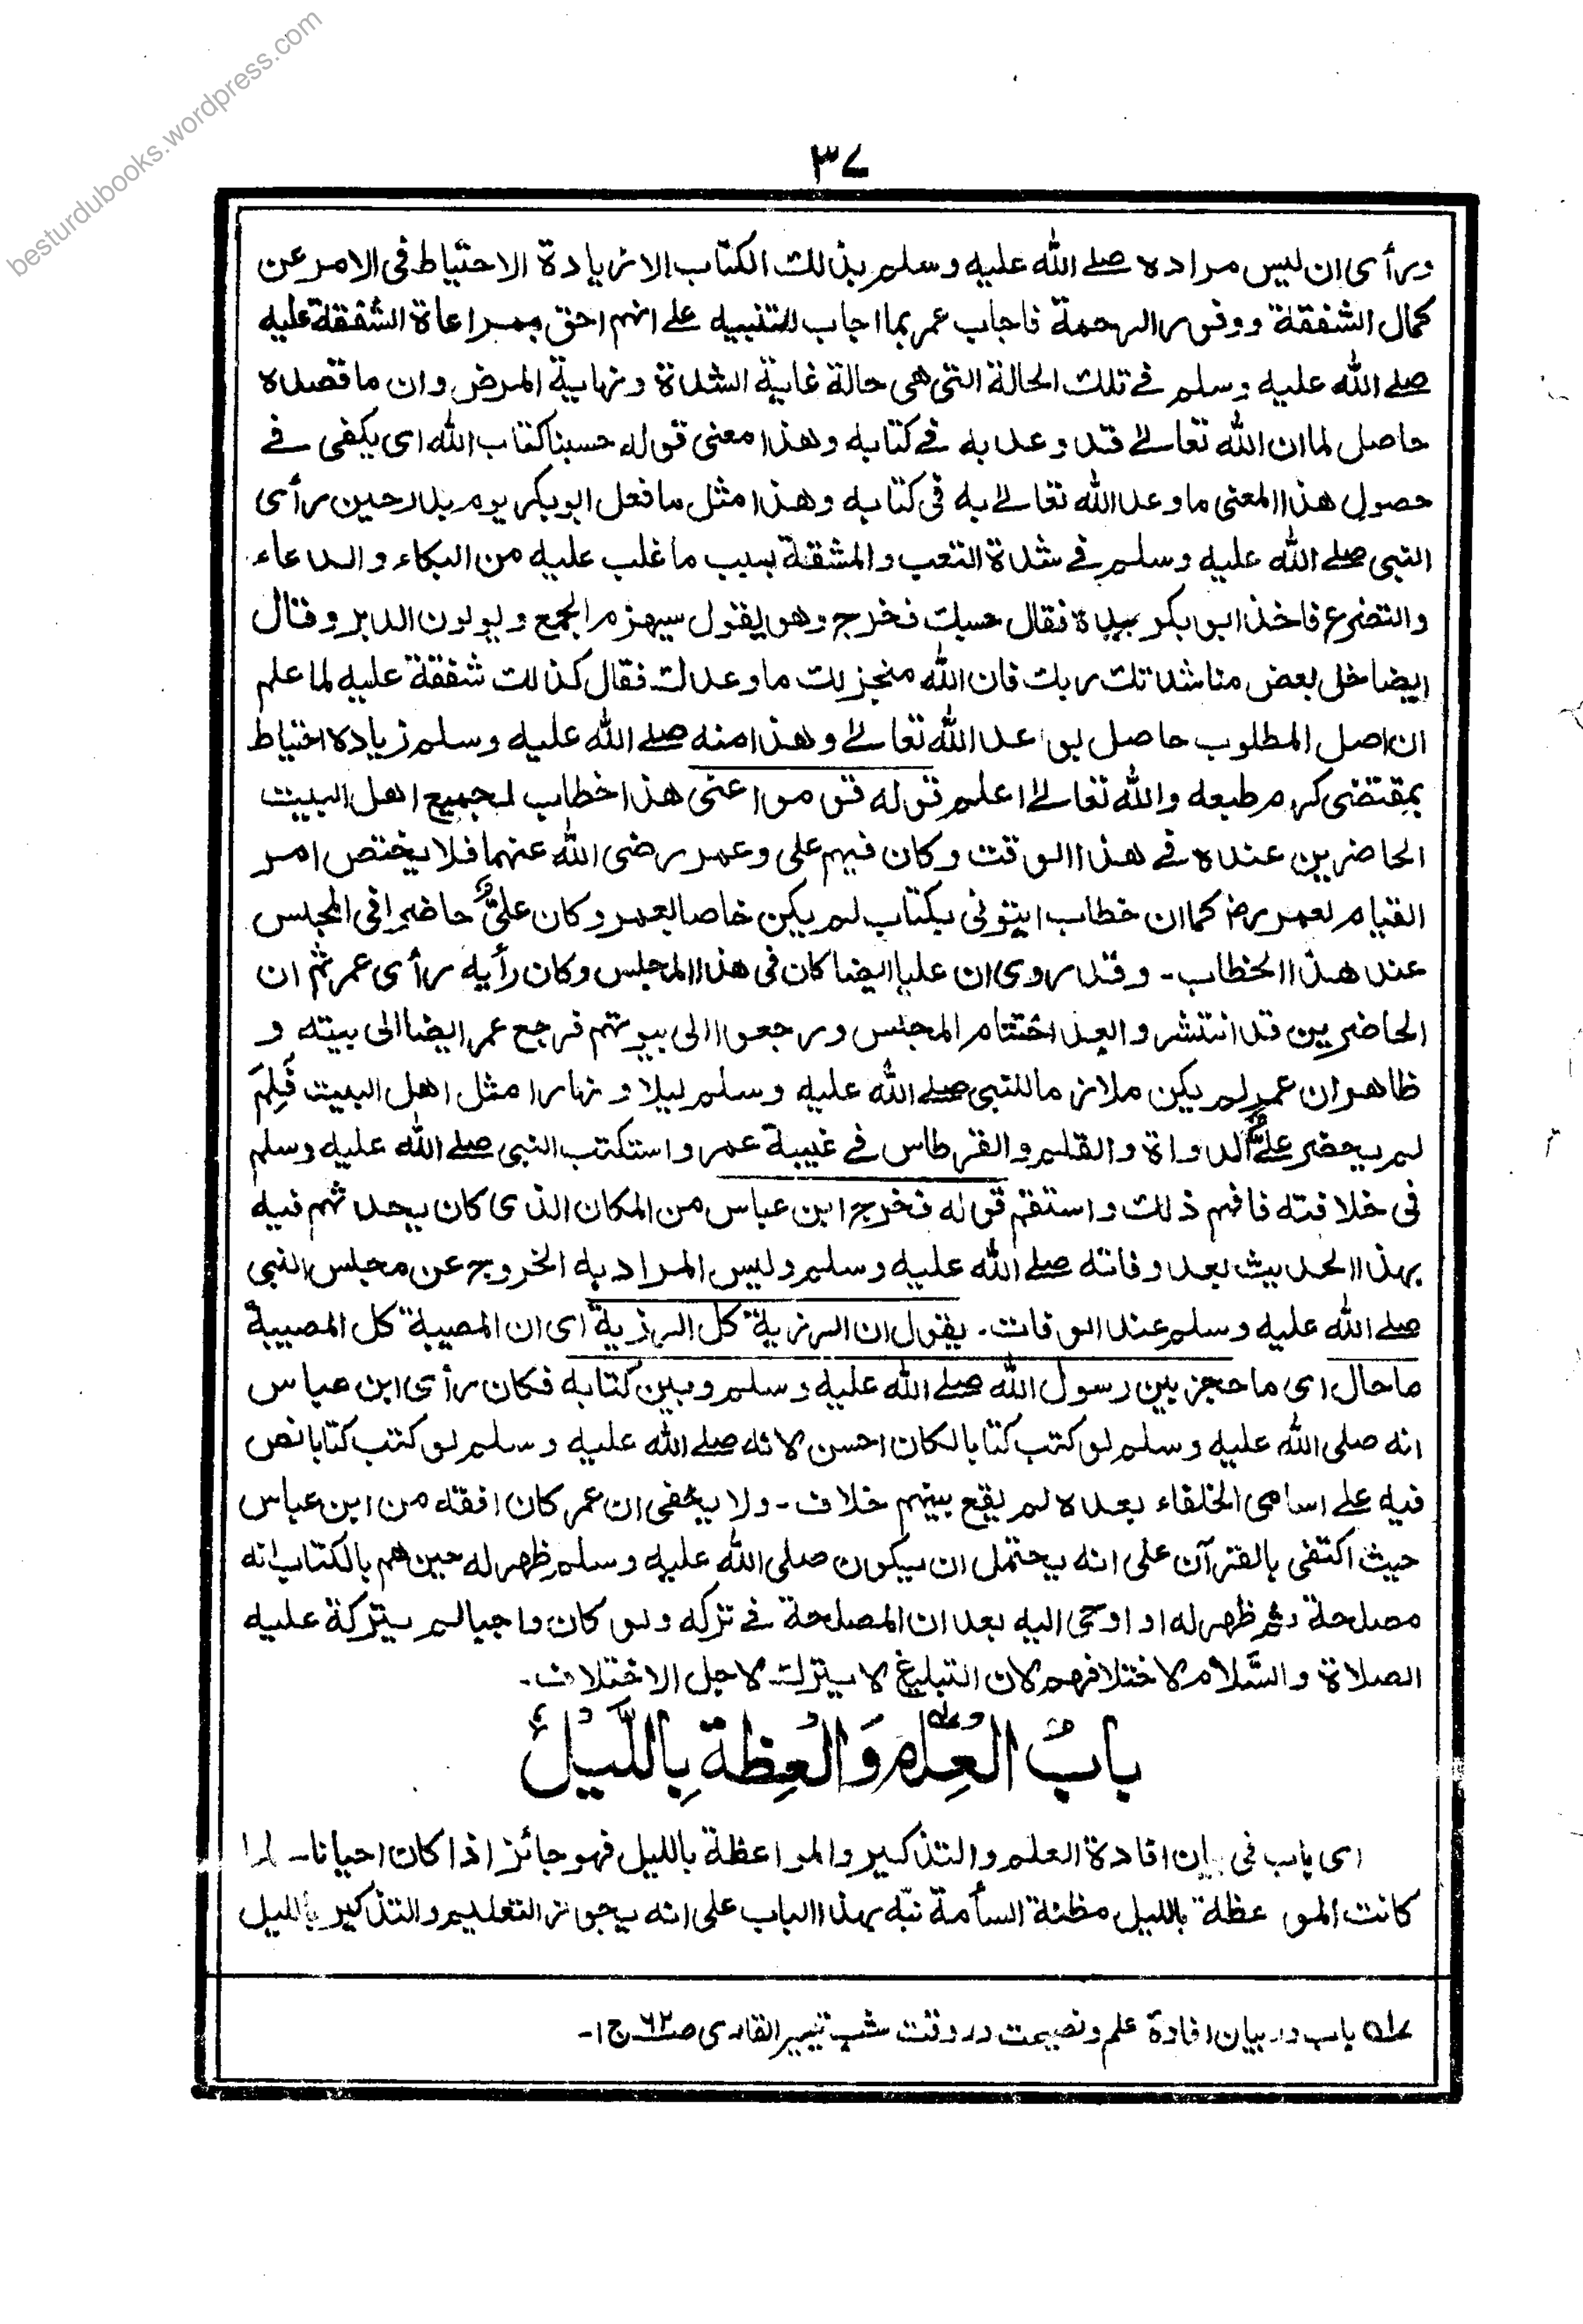 besturdubooks.wordpress.com
٣٧
ورأى ان ليس مراده صلے الله عليه وسلم بذلك الكتاب الا زيادة الاحتياط فى الامر عن
كمال الشفقة ووفور الرحمة فاجاب عمر بما اجاب للتنبيه علے انهم احق بمراعاة الشفقة عليه
صلے الله عليه وسلم فے تلك الحالة التى هى حالة غاية الشدة ونهاية المرض وان ما قصده
حاصل لما ان الله تعالےٰ قد وعد به فے كتابه وهذا معنى قوله حسبنا كتاب الله اى يكفى فے
حصول هذا المعنى ما وعد الله تعالےٰ به فى كتابه وهذا مثل ما فعل ابو بكر يوم بدر حين رأى
النبى صلے الله عليه وسلم فے شدة التعب والمشقة بسبب ما غلب عليه من البكاء والدعاء
والتضرع فاخذ ابو بكر بيده فقال حسبك فخرج وهو يقول سيهزم الجمع ويولون الدبر وقال
ايضا خل بعض مناشدتك ربك فان الله منجز لك ما وعدك فقال كذلك شفقة عليه لما علم
ان اصل المطلوب حاصل بوعد الله تعالےٰ وهذا منه صلے الله عليه وسلم زيادة احتياط
بمقتضى كرم طبعه والله تعالےٰ اعلم قوله قوموا عنى هذا خطاب لجميع اهل البيت
الحاضرين عنده فے هذا الوقت وكان فيهم على وعمر رضى الله عنهما فلا يختص امر
القيام لعمر رض كما ان خطاب ايتونى بكتاب لم يكن خاصا لعمر وكان علىٌّ حاضرا فى المجلس
عند هذا الخطاب ـ وقد روى ان عليا ايضا كان فى هذا المجلس وكان رأيه رأى عمر ثم ان
الحاضرين قد انتشروا بعد اختتام المجلس ورجعوا الى بيوتهم فرجع عمر ايضا الى بيته و
ظاهر ان عمر لم يكن ملازما للنبى صلے الله عليه وسلم ليلا ونهارا مثل اهل البيت فَلِمَ
لم يحضر علىٌّ الدواة والقلم والقرطاس فے غيبة عمر واستكتب النبى صلے الله عليه وسلم
فى خلافته فافهم ذلك واستقم قوله فخرج ابن عباس من المكان الذى كان يحدثهم فيه
بهذا الحديث بعد وفاته صلے الله عليه وسلم وليس المراد به الخروج عن مجلس النبى
صلے الله عليه وسلم عند الوفات ـ يقول ان الرزية كل الرزية اى ان المصيبة كل المصيبة
ما حال اى ما حجز بين رسول الله صلے الله عليه وسلم وبين كتابه فكان رأى ابن عباس
انه صلى الله عليه وسلم لو كتب كتابا لكان احسن لانه صلے الله عليه وسلم لو كتب كتابا نص
فيه علے اسامى الخلفاء بعده لم يقع بينهم خلاف ـ ولا يخفى ان عمر كان افقه من ابن عباس
حيث اكتفى بالقرآن على انه يحتمل ان يكون صلى الله عليه وسلم ظهر له حين هم بالكتاب انه
مصلحة ثم ظهر له او اوحى اليه بعد ان المصلحة فے تركه ولو كان واجبا لم يتركه عليه
الصلاة والسَّلام لاختلافهم لان التبليغ لا يترك لاجل الاختلاف ـ
بابُ العِلْمِ وَالْعِظَةِ بِاللَّيْلِ
اى باب فى بيان افادة العلم والتذكير والمواعظة بالليل فهو جائز اذا كان احيانا ـ لما
كانت الموعظة بالليل مظنة السأمة نبّه بهذا الباب على انه يجوز التعليم والتذكير بالليل
له باب در بيان افادة علم ونصيحت در وقت شب تيسير القارى صـ٦٢ ج ١ ـ